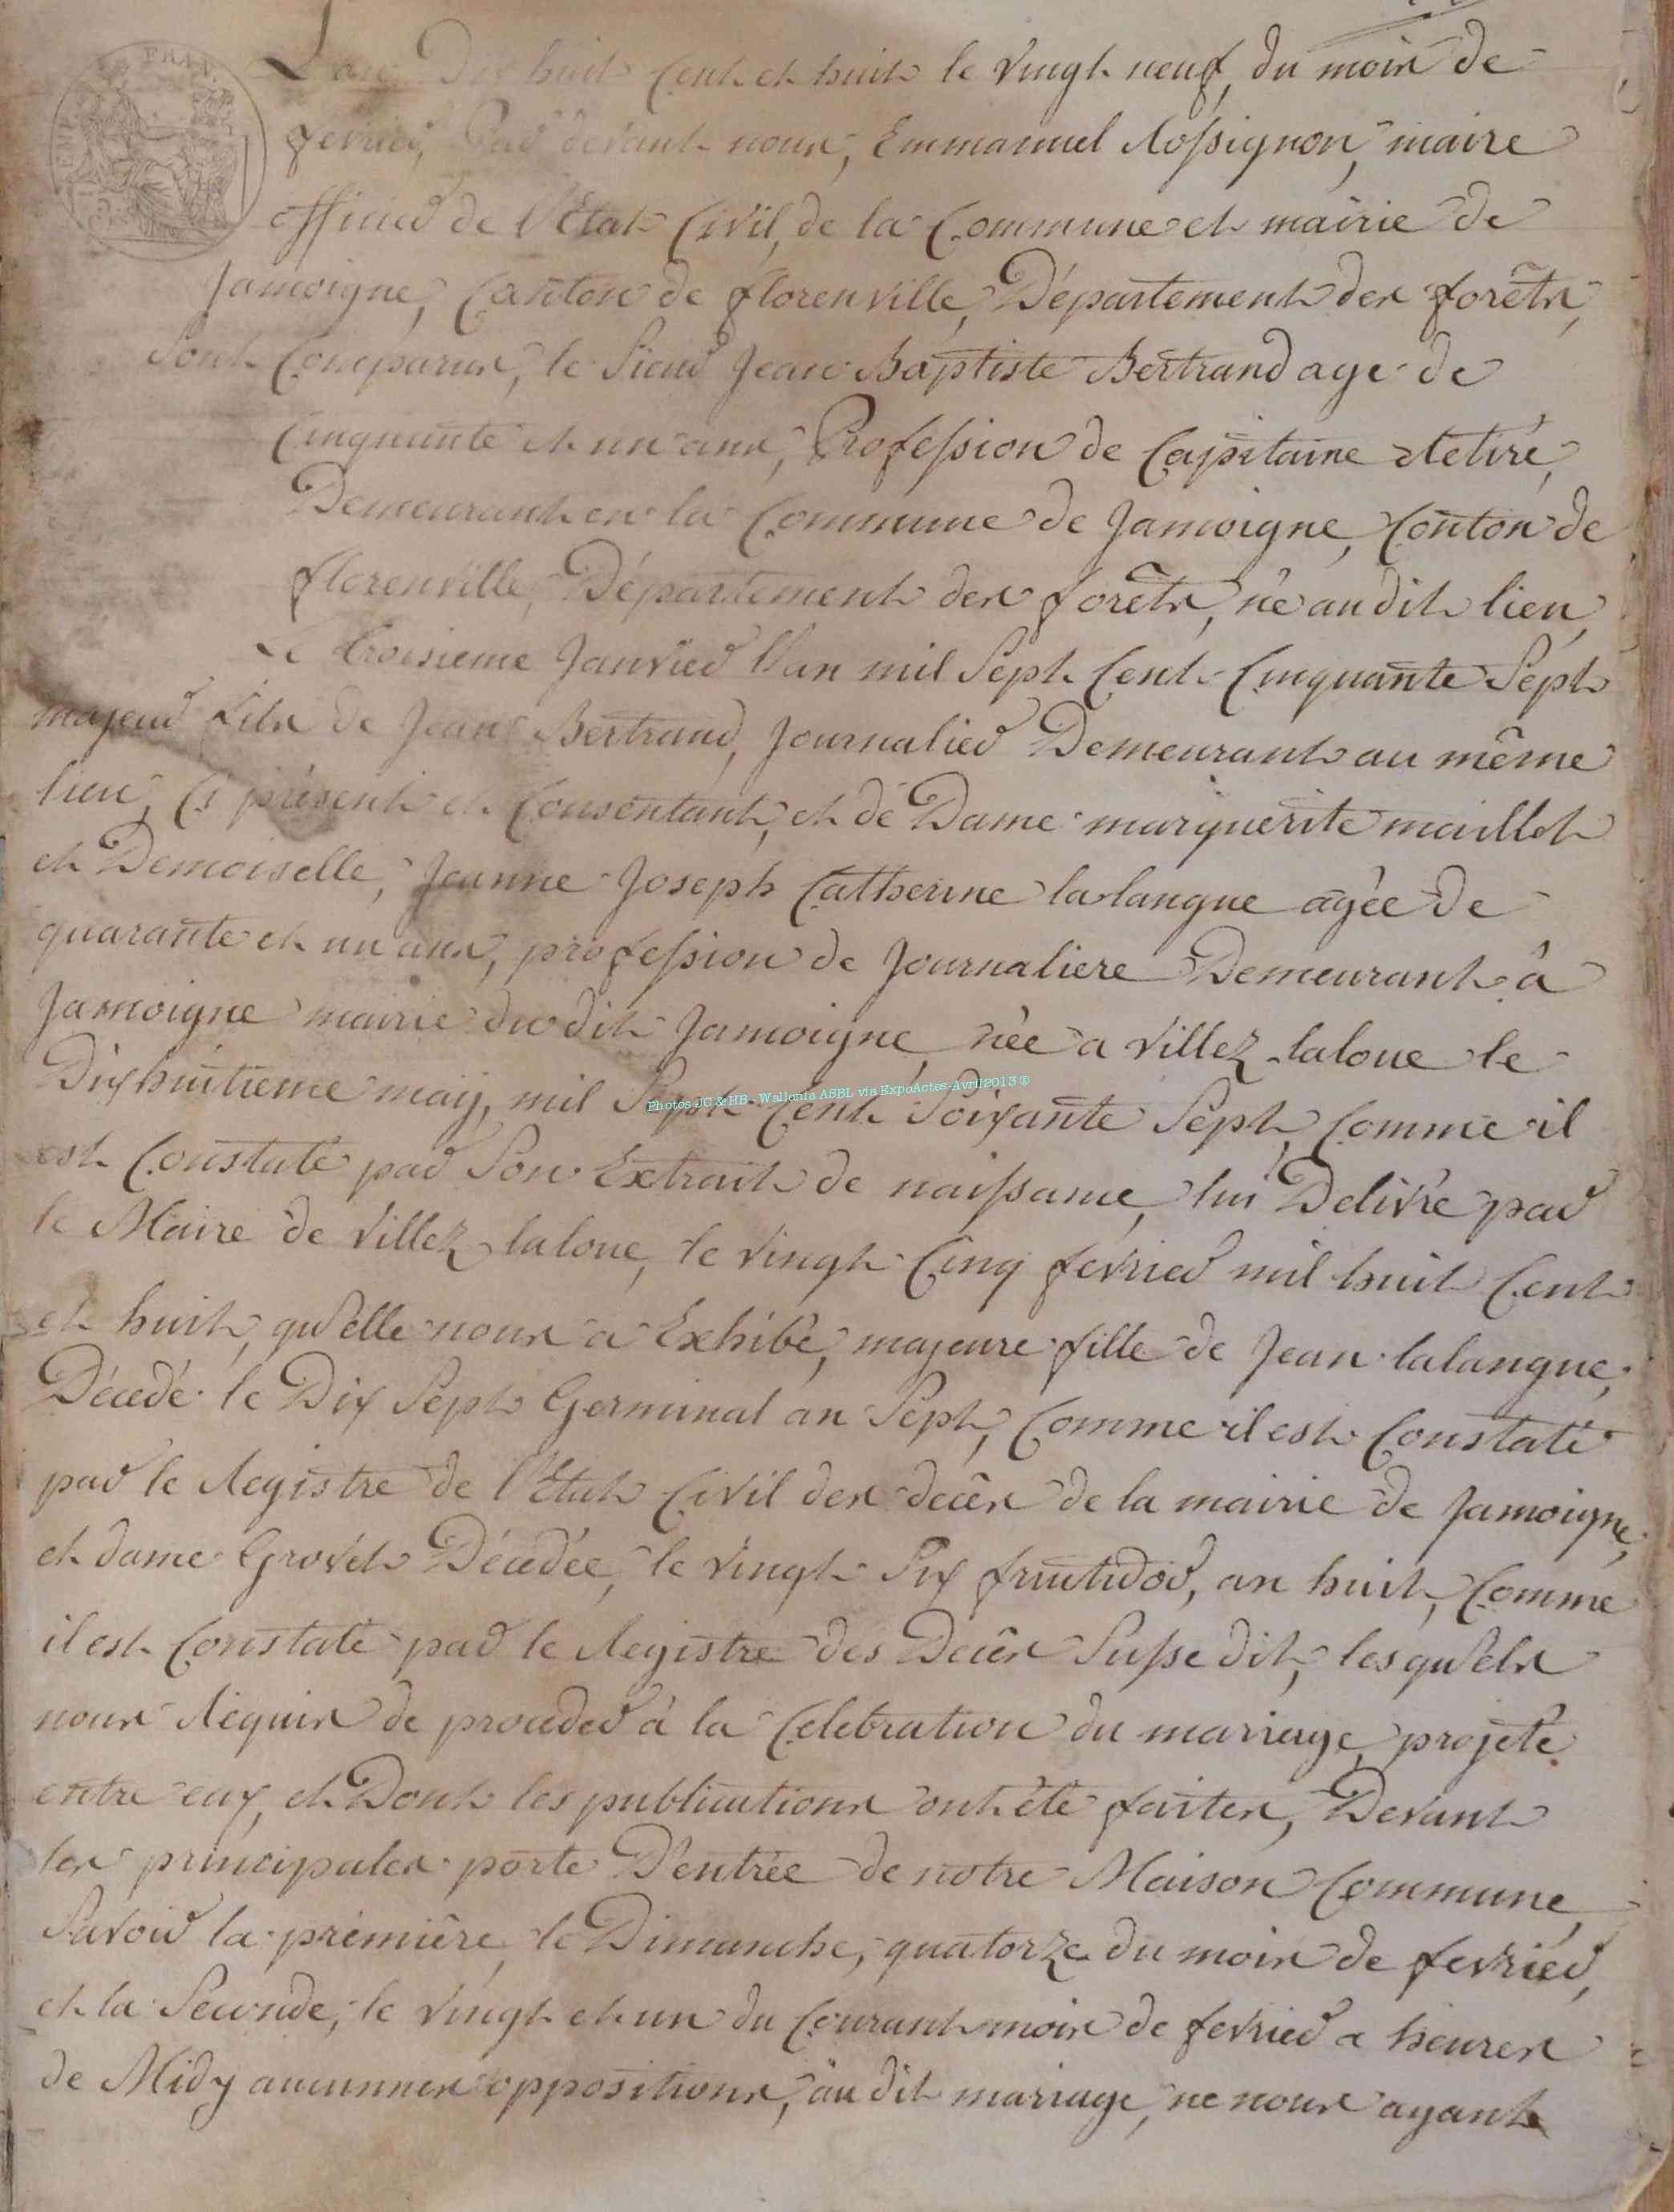 L'an Dix huit Cent et huit le Vingt neuf, du mois de
fevrier, Par devant nous, Emmanuel Rossignon, maire
officier de l'Etat Civil, de la Commune et mairie de
Jamoigne, Canton de florenville, Département des forêts,
Sont Comparus, le Sieur Jean Baptiste Bertrand age de
Cinquante et un ans, Profession de Capitaine Retiré,
Demeurant en la Commune de Jamoigne, Conton de
florenville, Département des forêts, né audit lieu
Le troisieme Janvier l'an mil Sept Cent Cinquante Sept
majeur fils de Jean Bertrand, Journalier Demeurant au même
lieu, Ci présent et Consentant, et de Dame marguerite maillot
et Demoiselle, Jeanne Joseph Catherine lalangue agée de
quarante et un ans, profession de Journaliere Demeurant à
Jamoigne mairie du dit Jamoigne, née a Villez laloue le
Dixhuitieme maÿ, mil Sept Cent Soixante Sept, Comme il
est Constaté par Son Extrait de naissance, lui Delivré par
le Maire de Villez laloue, le Vingt Cinq fevrier mil huit Cent
et huit, qu'elle nous a Exhibé, majeure fille de Jean lalangue,
Décedé le Dix Sept Germinal an Sept, Comme il est Constaté
par le Registre de l'Etat Civil des decês de la mairie de Jamoigne,
et dame Grovet Décedée, le Vingt Six fructidor, an huit, Comme
il est Constaté par le Registre des Decês Susse dit, lesquels
nous Réquis de proceder à la Celebration du mariage projété
entre eux, et Dont les publications ont été faites, Devant
les principales porte D'entrée de notre Maison Commune,
Savoir la première, le Dimanche, quatorze du mois de fevrier,
et la Seconde, le Vingt et un du Courant mois de fevrier a heures
de Midy aucunnes oppositions, au dit mariage, ne nous ayant
Photos JC & HB - Wallonia ASBL via ExpoActes-Avril2013 ©